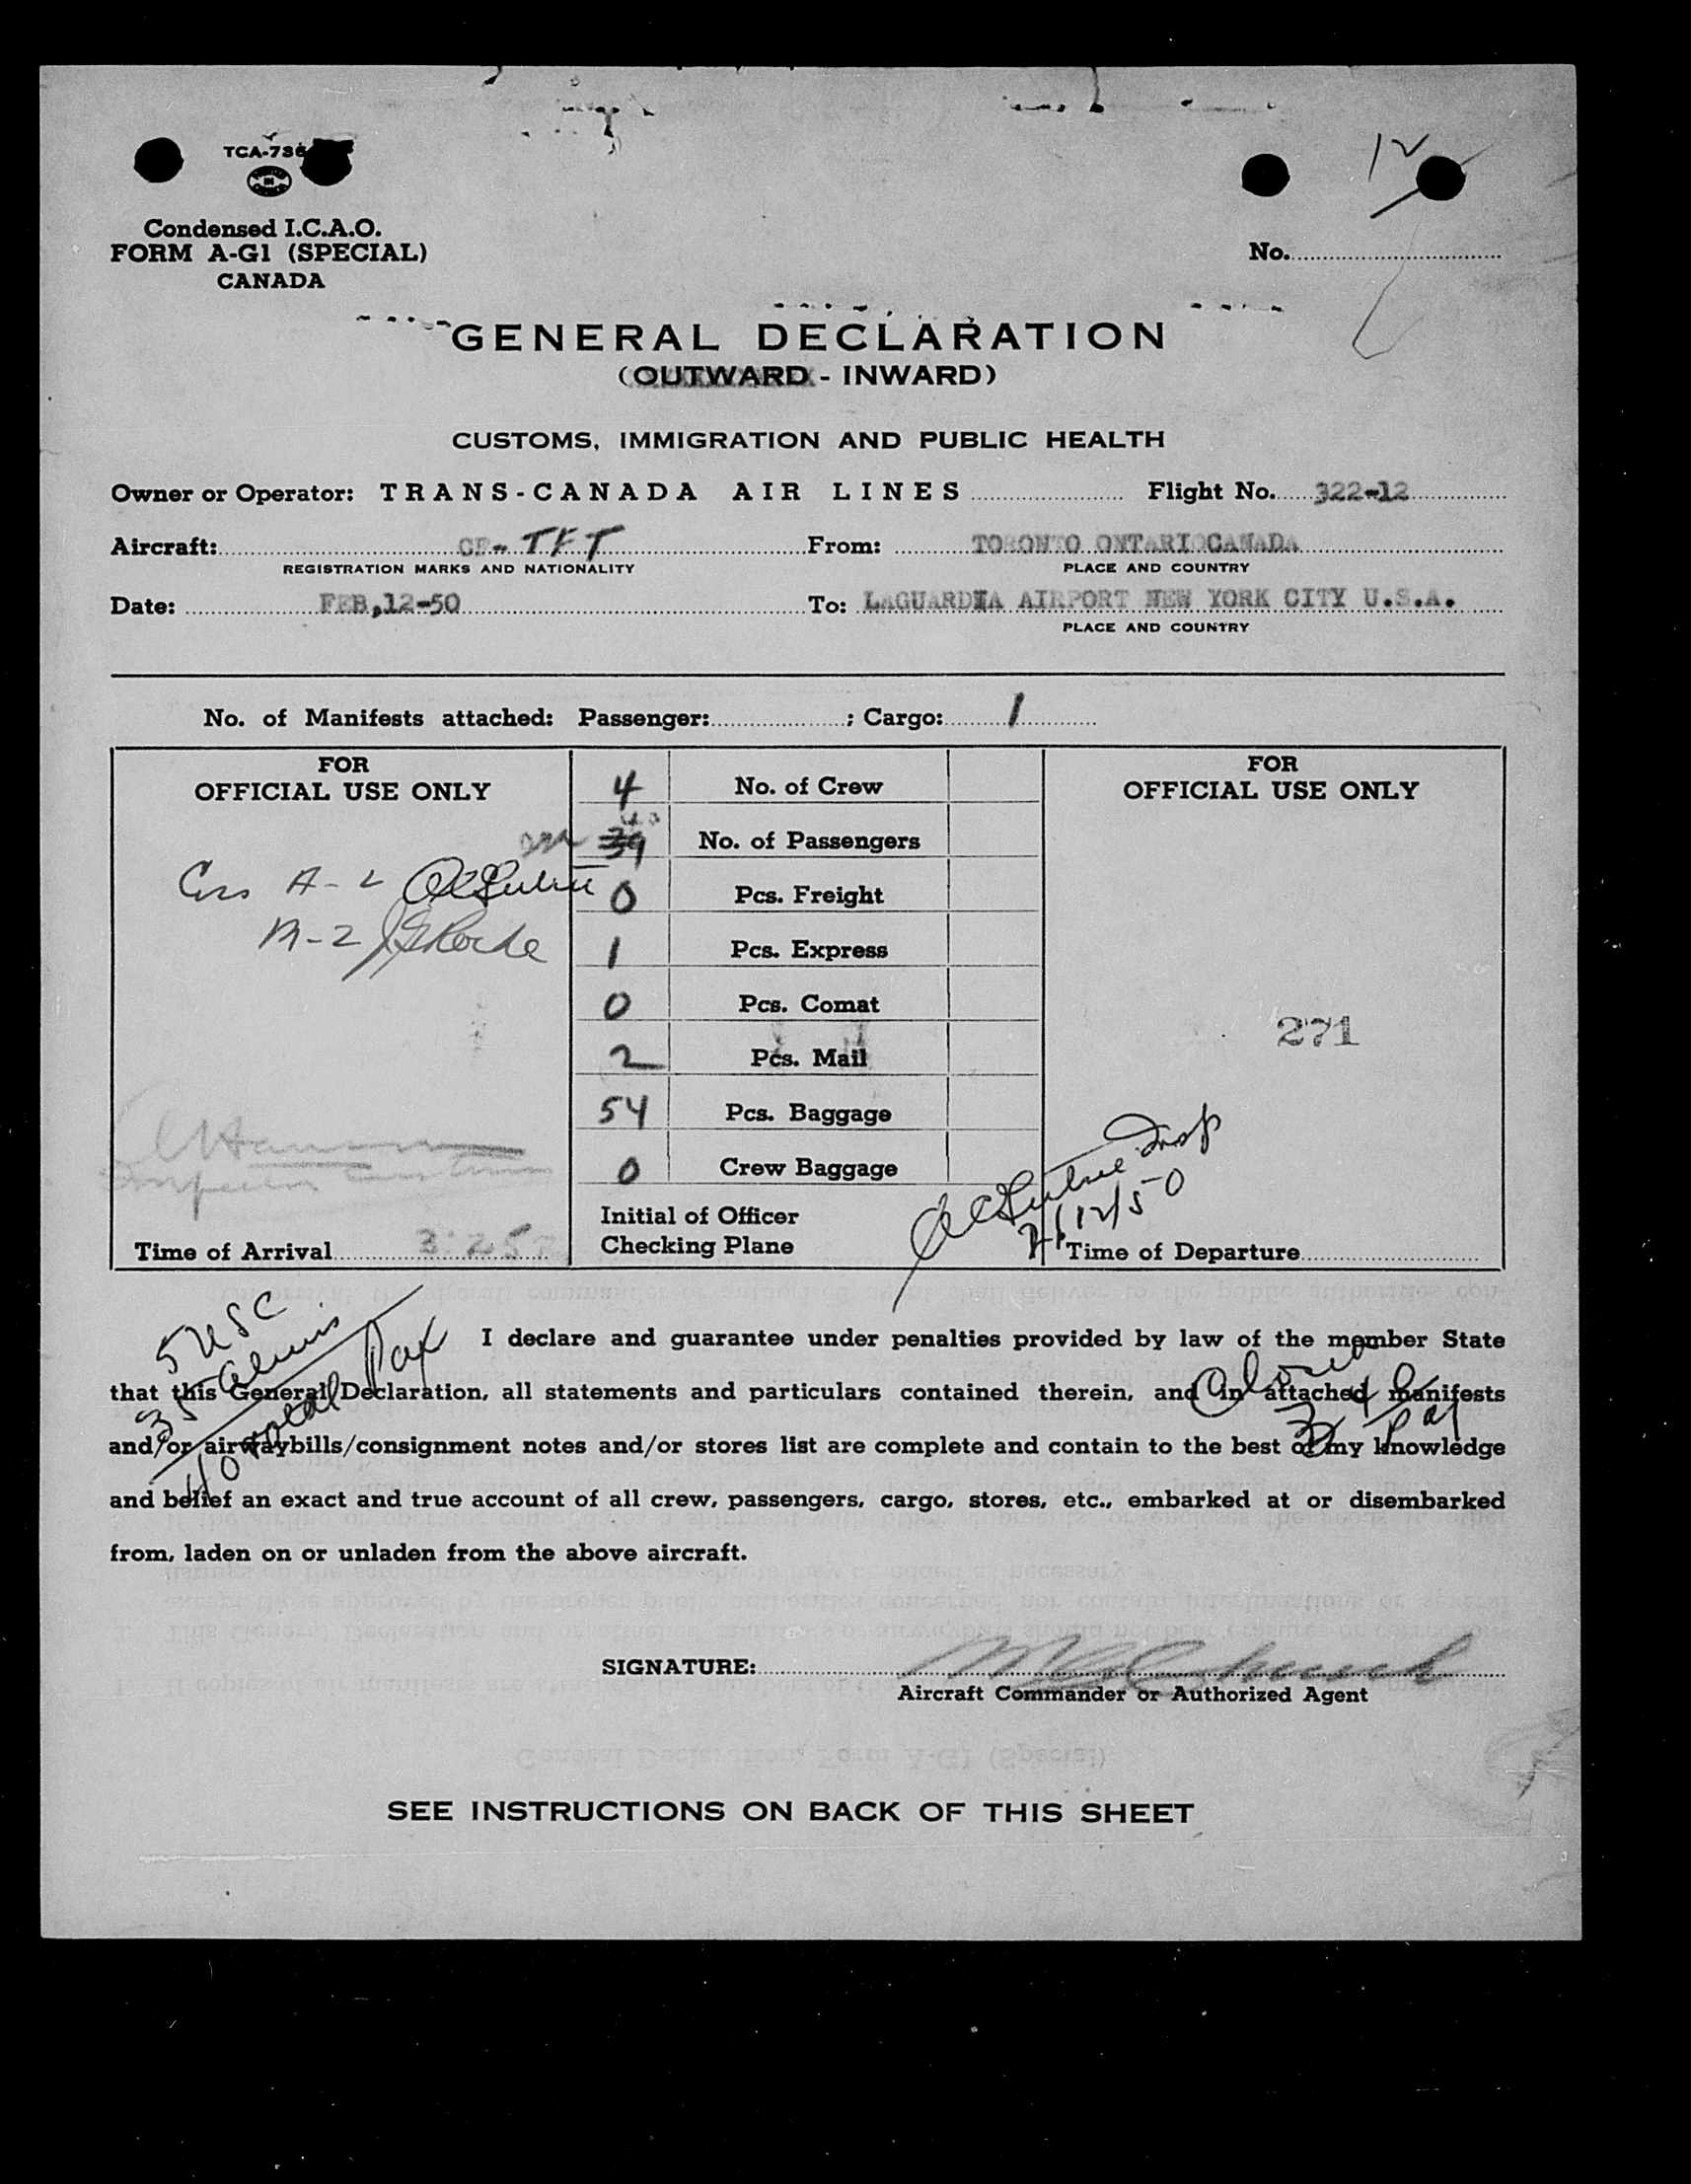 TCA-736
12
Condensed I.C.A.O.
FORM A-G1 (SPECIAL)
CANADA
No.
GENERAL DECLARATION
(OUTWARD - INWARD)
CUSTOMS, IMMIGRATION AND PUBLIC HEALTH
Owner or Operator: TRANS-CANADA AIR LINES Flight No. 322-12
Aircraft: CF- TFT From: TORONTO ONTARIO CANADA
REGISTRATION MARKS AND NATIONALITY PLACE AND COUNTRY
Date: FEB,12-50 To: LAGUARDIA AIRPORT NEW YORK CITY U.S.A.
PLACE AND COUNTRY
No. of Manifests attached: Passenger: ; Cargo: 1
FOR
OFFICIAL USE ONLY
A-2
Time of Arrival 3:25
4 No. of Crew
39 40 No. of Passengers
0 Pcs. Freight
1 Pcs. Express
0 Pcs. Comat
2 Pcs. Mail
54 Pcs. Baggage
0 Crew Baggage
Initial of Officer
Checking Plane
FOR
OFFICIAL USE ONLY
271
Insp
2/12/50
Time of Departure
5 USC
35 Aliens
40 Total Pax
I declare and guarantee under penalties provided by law of the member State
that this General Declaration, all statements and particulars contained therein, and in attached manifests
and/or airwaybills/consignment notes and/or stores list are complete and contain to the best of my knowledge
and belief an exact and true account of all crew, passengers, cargo, stores, etc., embarked at or disembarked
from, laden on or unladen from the above aircraft.
SIGNATURE:
Aircraft Commander or Authorized Agent
SEE INSTRUCTIONS ON BACK OF THIS SHEET